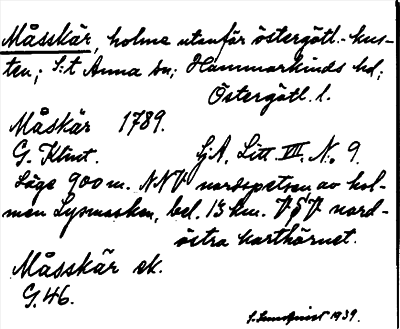 Måsskär, holme utanför östergötl.-kus-
ten; S:t Anna sn; Hammarkinds hd;
Östergötl. l.
Måskär 1789.
G. Klint. Sj.A. Litt. III. No. 9.
Läge 900 m. NNV nordspetsen av hol-
men Lysmasken, bel. 13 km. VSV nord-
östra karthörnet.
Måsskär ek.
G.46.
S. Lundqvist 1939.